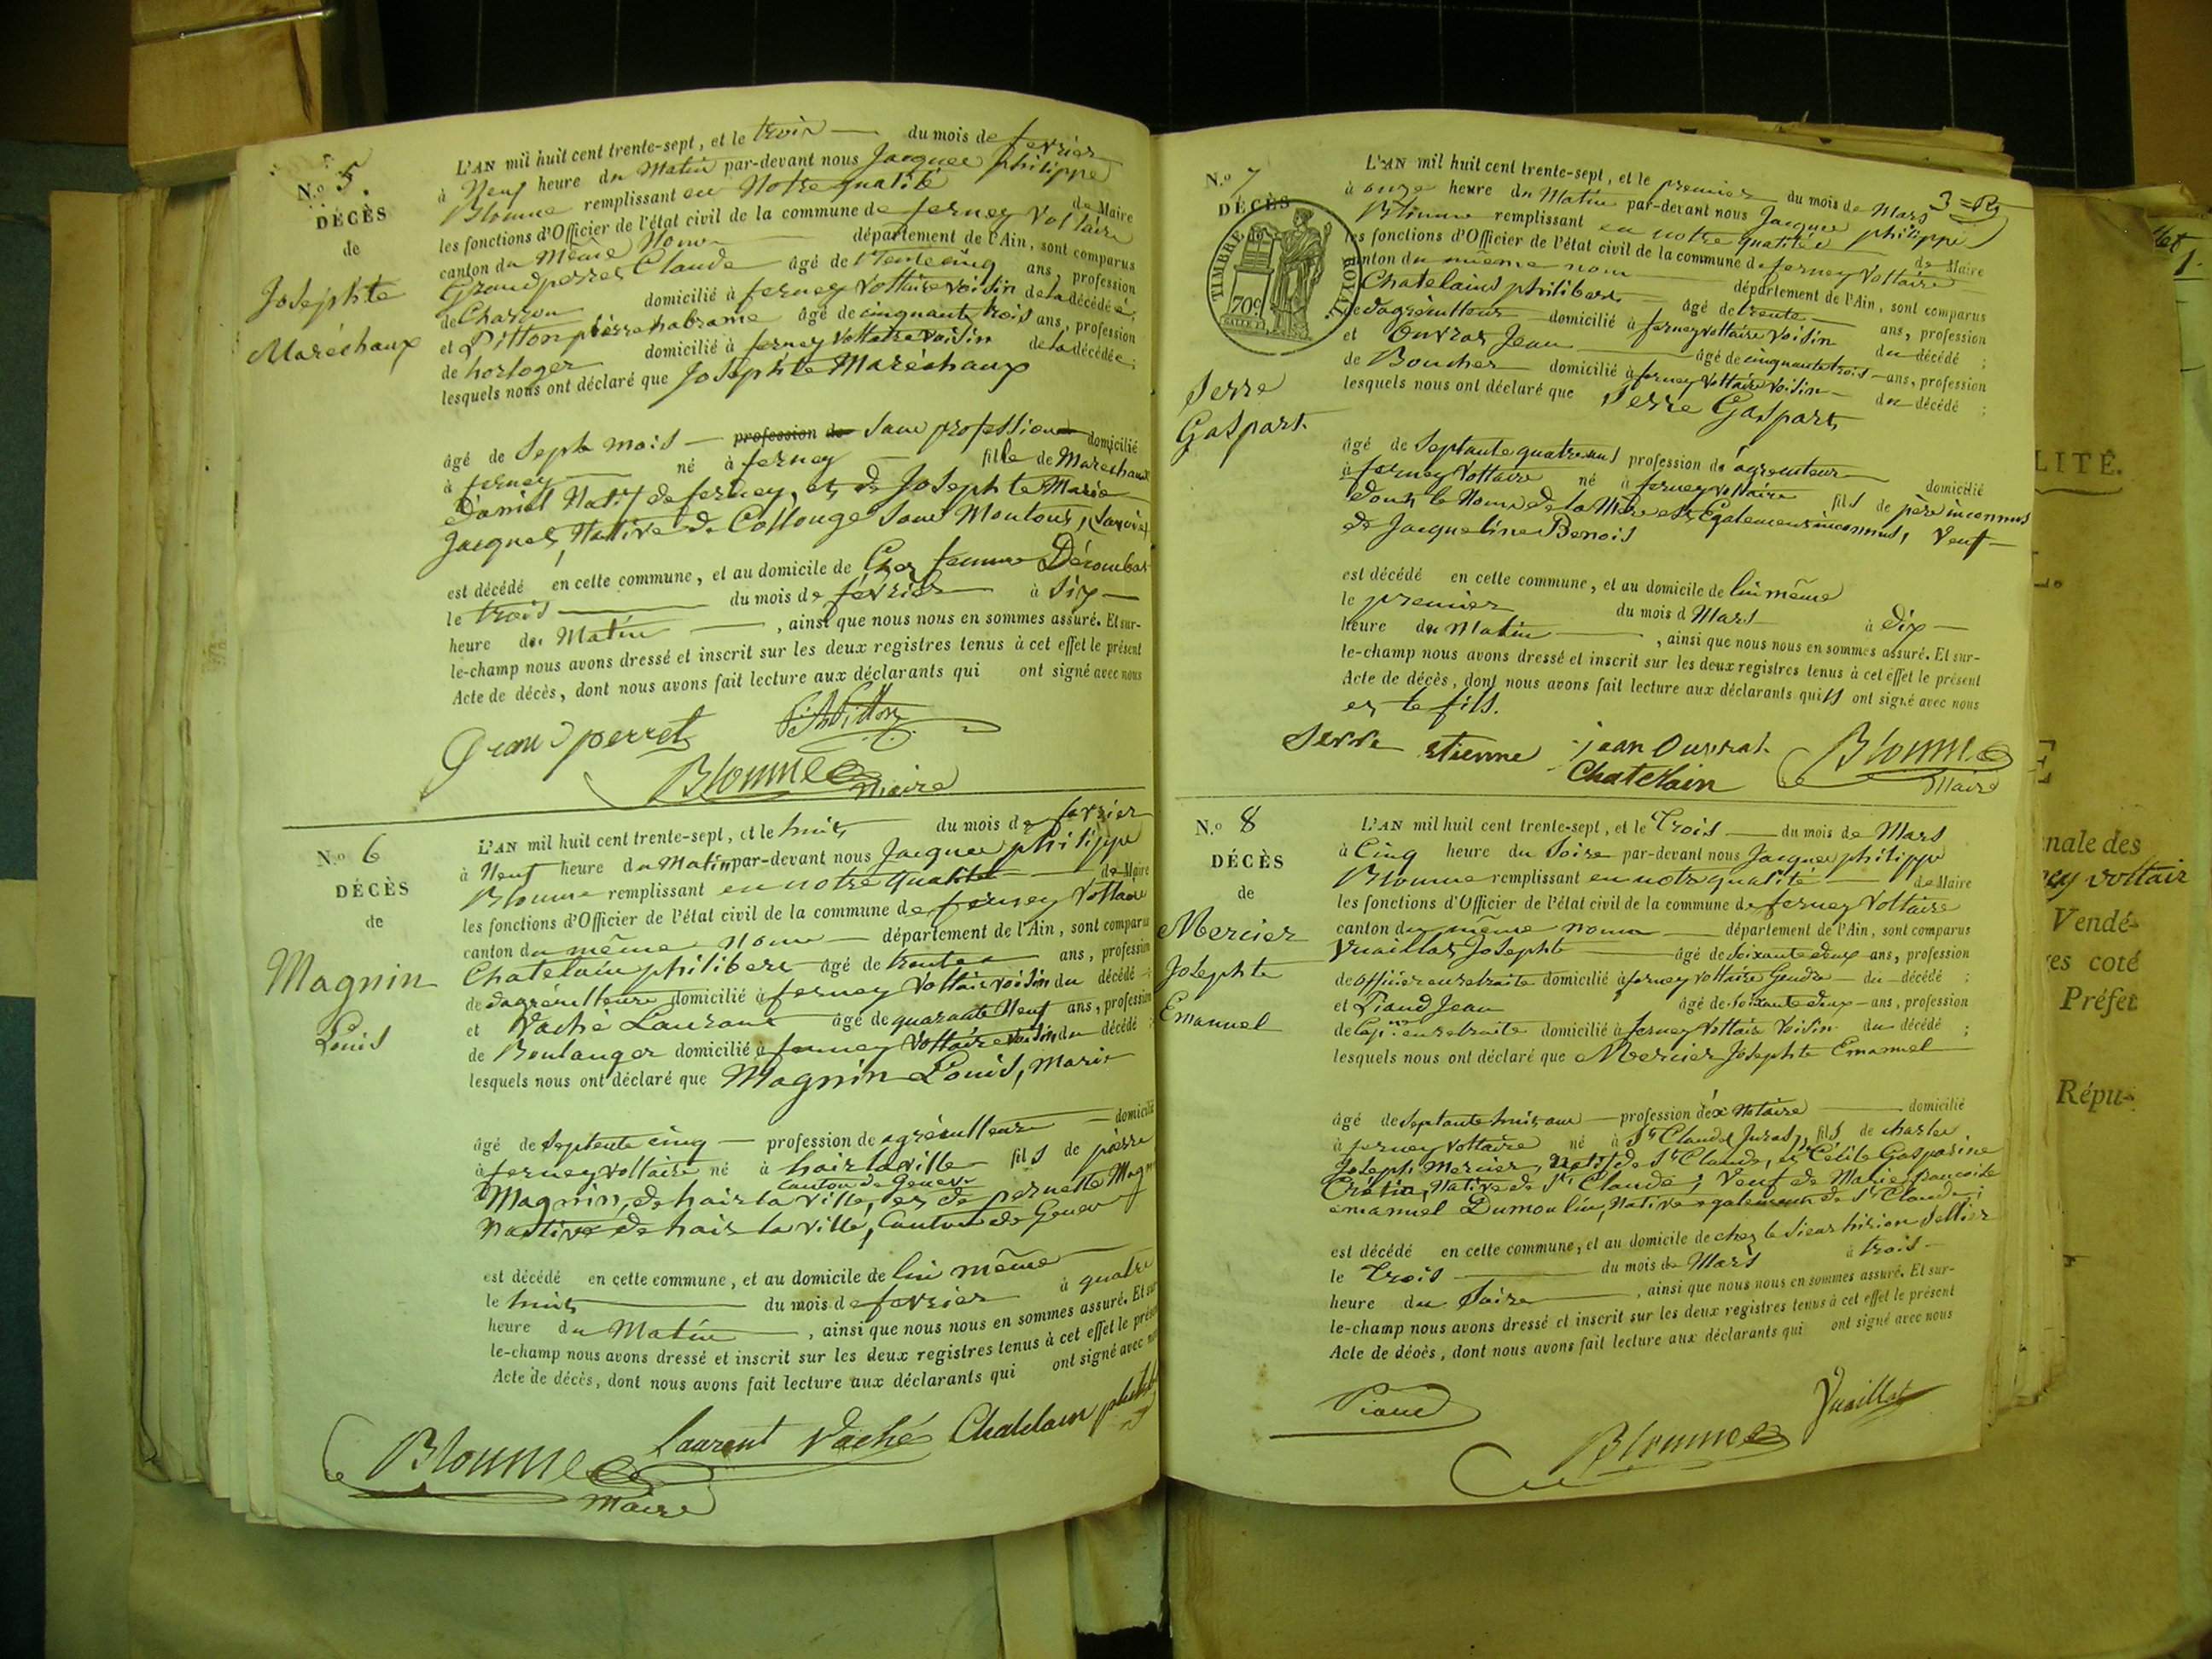 N.º 5.
DÉCÈS
de
Josephte
Maréchaux
L'AN mil huit cent trente-sept, et le trois du mois de fevrier
à Neuf heure du Matin par-devant nous Jacques philippe
Blonme remplissant en Notre qualité de Maire
les fonctions d'Officier de l'état civil de la commune de ferney Voltaire
canton du Même Nom département de l'Ain, sont comparus
Grandperret Claude âgé de trente cinq ans, profession
de Charron domicilié à ferney Voltaire voisin de la décédée;
et Pitton pierre habrame âgé de cinquante trois ans, profession
de horloger domicilié à ferney Voltaire voisin de la décédée;
lesquels nous ont déclaré que Josephte Maréchaux
âgé de Sept mois profession de Sans profession domicilié
à ferney né à ferney fille de Maréchaux
Daniel Natif de ferney, et de Josephte Marie
Jacques, Native de Collonge Sous
est décédé en cette commune, et au domicile de femme
le trois du mois de février à Six
heure du Matin, ainsi que nous nous en sommes assuré. Et sur-
le-champ nous avons dressé et inscrit sur les deux registres tenus à cet effet le présent
Acte de décès, dont nous avons fait lecture aux déclarants qui ont signé avec nous
Grandperret Pitton
Blonme Maire
N.º 6
DÉCÈS
de
Magnin
Louis
L'AN mil huit cent trente-sept, et le huit du mois de fevrier
à Neuf heure du Matin par-devant nous Jacques philippe
Blonme remplissant en notre qualité de Maire
les fonctions d'Officier de l'état civil de la commune de ferney Voltaire
canton du même Nom département de l'Ain, sont comparus
Chatelain philibert âgé de trente ans, profession
de dagriculteur domicilié à ferney Voltaire voisin du décédé;
et Vaché Laurant âgé de quarante Neuf ans, profession
de Boulanger domicilié à ferney Voltaire voisin du décédé;
lesquels nous ont déclaré que Magnin Louis, Marie
âgé de Septente cinq profession de agriculteur domicilié
à ferney Voltaire né à hair la ville fils de pierre
Canton de Geneve
Magnin, de hair la Ville, et de pernette
Native de hair la Ville, Canton de Geneve
est décédé en cette commune, et au domicile de lui même
le huit du mois de fevrier à quatre
heure du Matin, ainsi que nous nous en sommes assuré. Et sur-
le-champ nous avons dressé et inscrit sur les deux registres tenus à cet effet le présent
Acte de décès, dont nous avons fait lecture aux déclarants qui ont signé avec nous
Blonme Laurent Vaché Chatelain
Maire
N.º 7
DÉCÈS
TIMBRE ROYAL
70c
Serre
Gaspart
L'AN mil huit cent trente-sept, et le premier du mois de Mars
à onze heure du Matin par-devant nous Jacques philippe
Blonme remplissant en notre qualitée de Maire
les fonctions d'Officier de l'état civil de la commune de ferney Voltaire
canton du mieme nom département de l'Ain, sont comparus
Chatelain philibert âgé de trente ans, profession
de dagriculteur domicilié à ferney Voltaire Voisin du décédé;
et Ouvrat Jean âgé de cinquante trois ans, profession
de Boucher domicilié à ferney Voltaire Voisin du décédé;
lesquels nous ont déclaré que Serre Gaspart
âgé de Septante quatre ans profession de agreculteur domicilié
à ferney Voltaire né à ferney Voltaire fils de père inconnus
dont le Nom de la Mère est Egalement inconnus, Veuf
de Jacqueline Benois
est décédé en cette commune, et au domicile de lui même
le premier du mois d Mars à dix
heure du Matin, ainsi que nous nous en sommes assuré. Et sur-
le-champ nous avons dressé et inscrit sur les deux registres tenus à cet effet le présent
Acte de décès, dont nous avons fait lecture aux déclarants qui ont signé avec nous
et le fils.
Serre etienne jean Ouvrat Blonme
Chatelain Maire
N.º 8
DÉCÈS
de
Mercier
Josephte
Emanuel
L'AN mil huit cent trente-sept, et le Trois du mois de Mars
à Cinq heure du Soire par-devant nous Jacques philippe
Blonme remplissant en notre qualité de Maire
les fonctions d'Officier de l'état civil de la commune de ferney Voltaire
canton du même nom département de l'Ain, sont comparus
Vuaillat Josephte âgé de Soixante deux ans, profession
de officier en retraite domicilié à ferney Voltaire Gendre du décédé;
et Piaud Jean âgé de Soixante deux ans, profession
de Cap.ne en retraite domicilié à ferney Voltaire Voisin du décédé;
lesquels nous ont déclaré que Mercier Josephte Emanuel
âgé de Septante huit ans profession dex Notaire domicilié
à ferney Voltaire né à St Claude (Jura), fils de charles
Joseph Mercier, natif de St Claude, et Célite Gasparine
Native de St Claude; Veuf de Marie francoise
emanuel Dumoulin, Native egalement de St Claude;
est décédé en cette commune, et au domicile de chez le Sieur Sellier
le Trois du mois de Mars à trois
heure du Soire, ainsi que nous nous en sommes assuré. Et sur-
le-champ nous avons dressé et inscrit sur les deux registres tenus à cet effet le présent
Acte de décès, dont nous avons fait lecture aux déclarants qui ont signé avec nous
Piaud Vuaillat
Blonme
LITÉ.
nale des
voltair
Vendé-
res coté
Préfet
Répu-